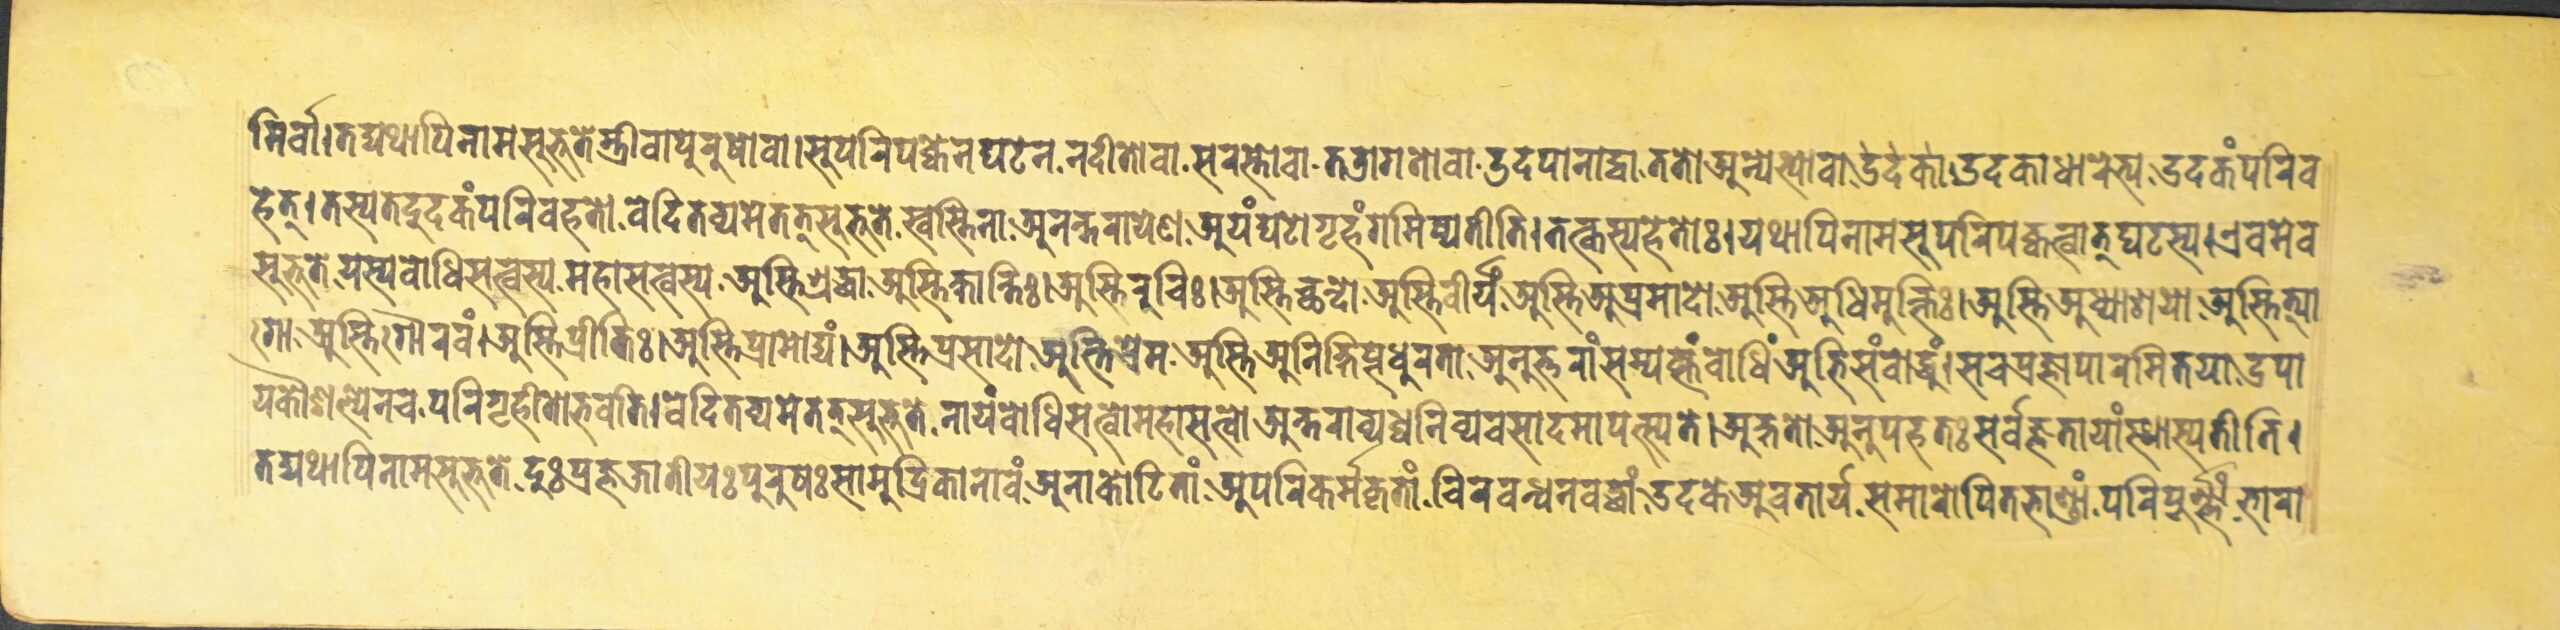 मिर्वा।तद्यथापिनामसुभूतेस्त्रीवापुरुषोवा।सुपरिपक्वेनघटेन नदीतोवा सरस्तोवा तडागतोवा उदपानाद्वा ततोअन्येभ्योवा उदकाधारेभ्य उदकंपरिव
हेत्।तस्यतदुदकंपरिवहतो वेदितव्यमेतत्सुभूते स्वस्तिना अनन्तरायेण अयंघटोगृहंगमिष्यतीति।तत्कस्यहेतोः।यथापिनामसुपरिपक्वत्वात् घटस्य।एवमेव
सुभूते यस्यबोधिसत्वस्य महासत्वस्य अस्तिश्रद्धा अस्तिक्षान्तिः।अस्तिरुचिः।अस्तिच्छन्दो अस्तिवीर्यं अस्तिअप्रमादो अस्तिअधिमुक्तिः।अस्तिअध्याशयो अस्तित्या
गो अस्तिगौरवं।अस्तिप्रीतिः।अस्तिप्रामोद्यं।अस्तिप्रसादो अस्तिप्रेम अस्तिअनिक्षिप्तधुरता अनुत्तरांसम्यक्संबोधिं अभिसंबोद्धुं।सचप्रज्ञापारमितया उपा
यकौशल्येनच परिगृहीतोभवति।वेदितव्यमेतत्सुभूते नायंबोधिसत्वोमहासत्वो अन्तराव्यध्वनिव्यवसादमापत्स्यते।अक्षतो अनुपहतः सर्वज्ञतायांस्थास्यतीति।
तद्यथापिनामसुभूते दुःप्रज्ञजातीयःपुरुषःसामुद्रिकानावं अनाकोटितां अपरिकर्मकृतां चिरबन्धनबद्धां उदकेअवतार्य समारोपितभाण्डां परिपूर्ण्णां भारा